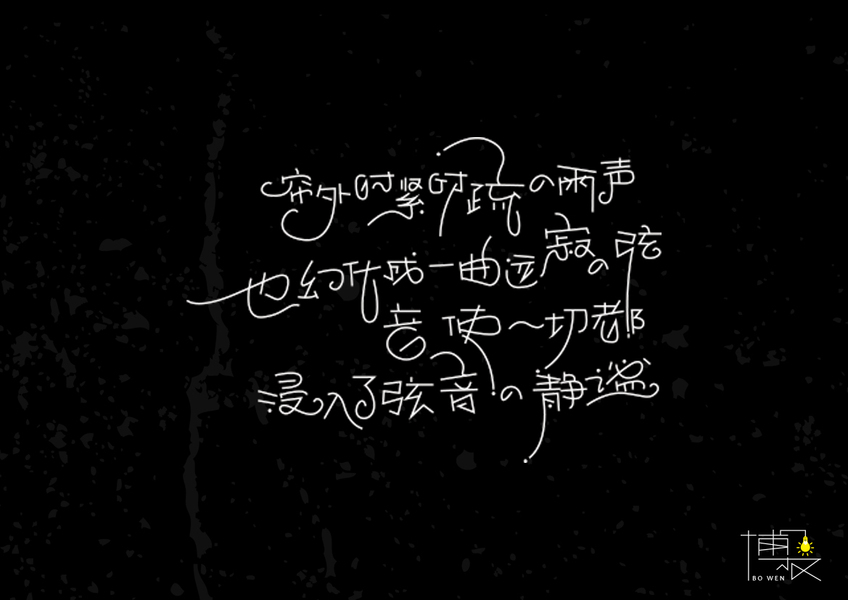 窗外时紧时疏の雨声
也幻化成一曲远寂の弦
音使一切都
浸入了弦音の静谧
BO WEN